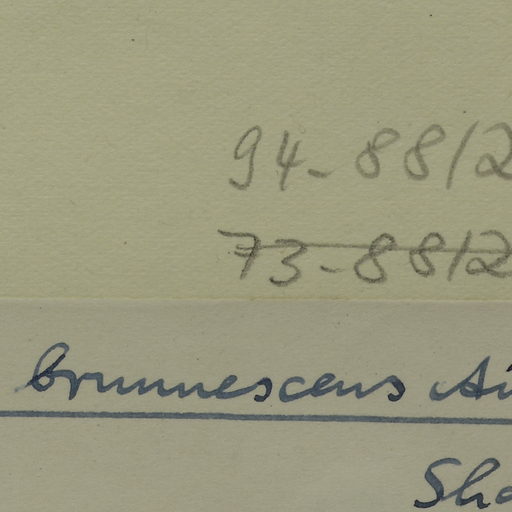 94-8812
73-8812
brunnescens Ai
Sha